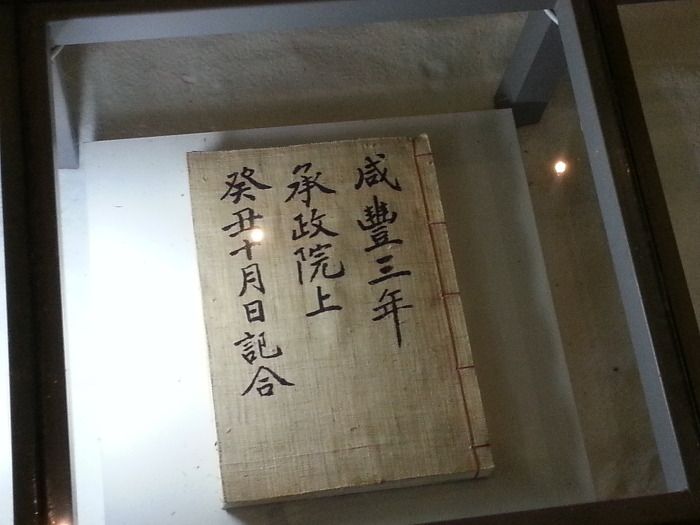 咸豐三年
承政院上
癸丑十月日記合